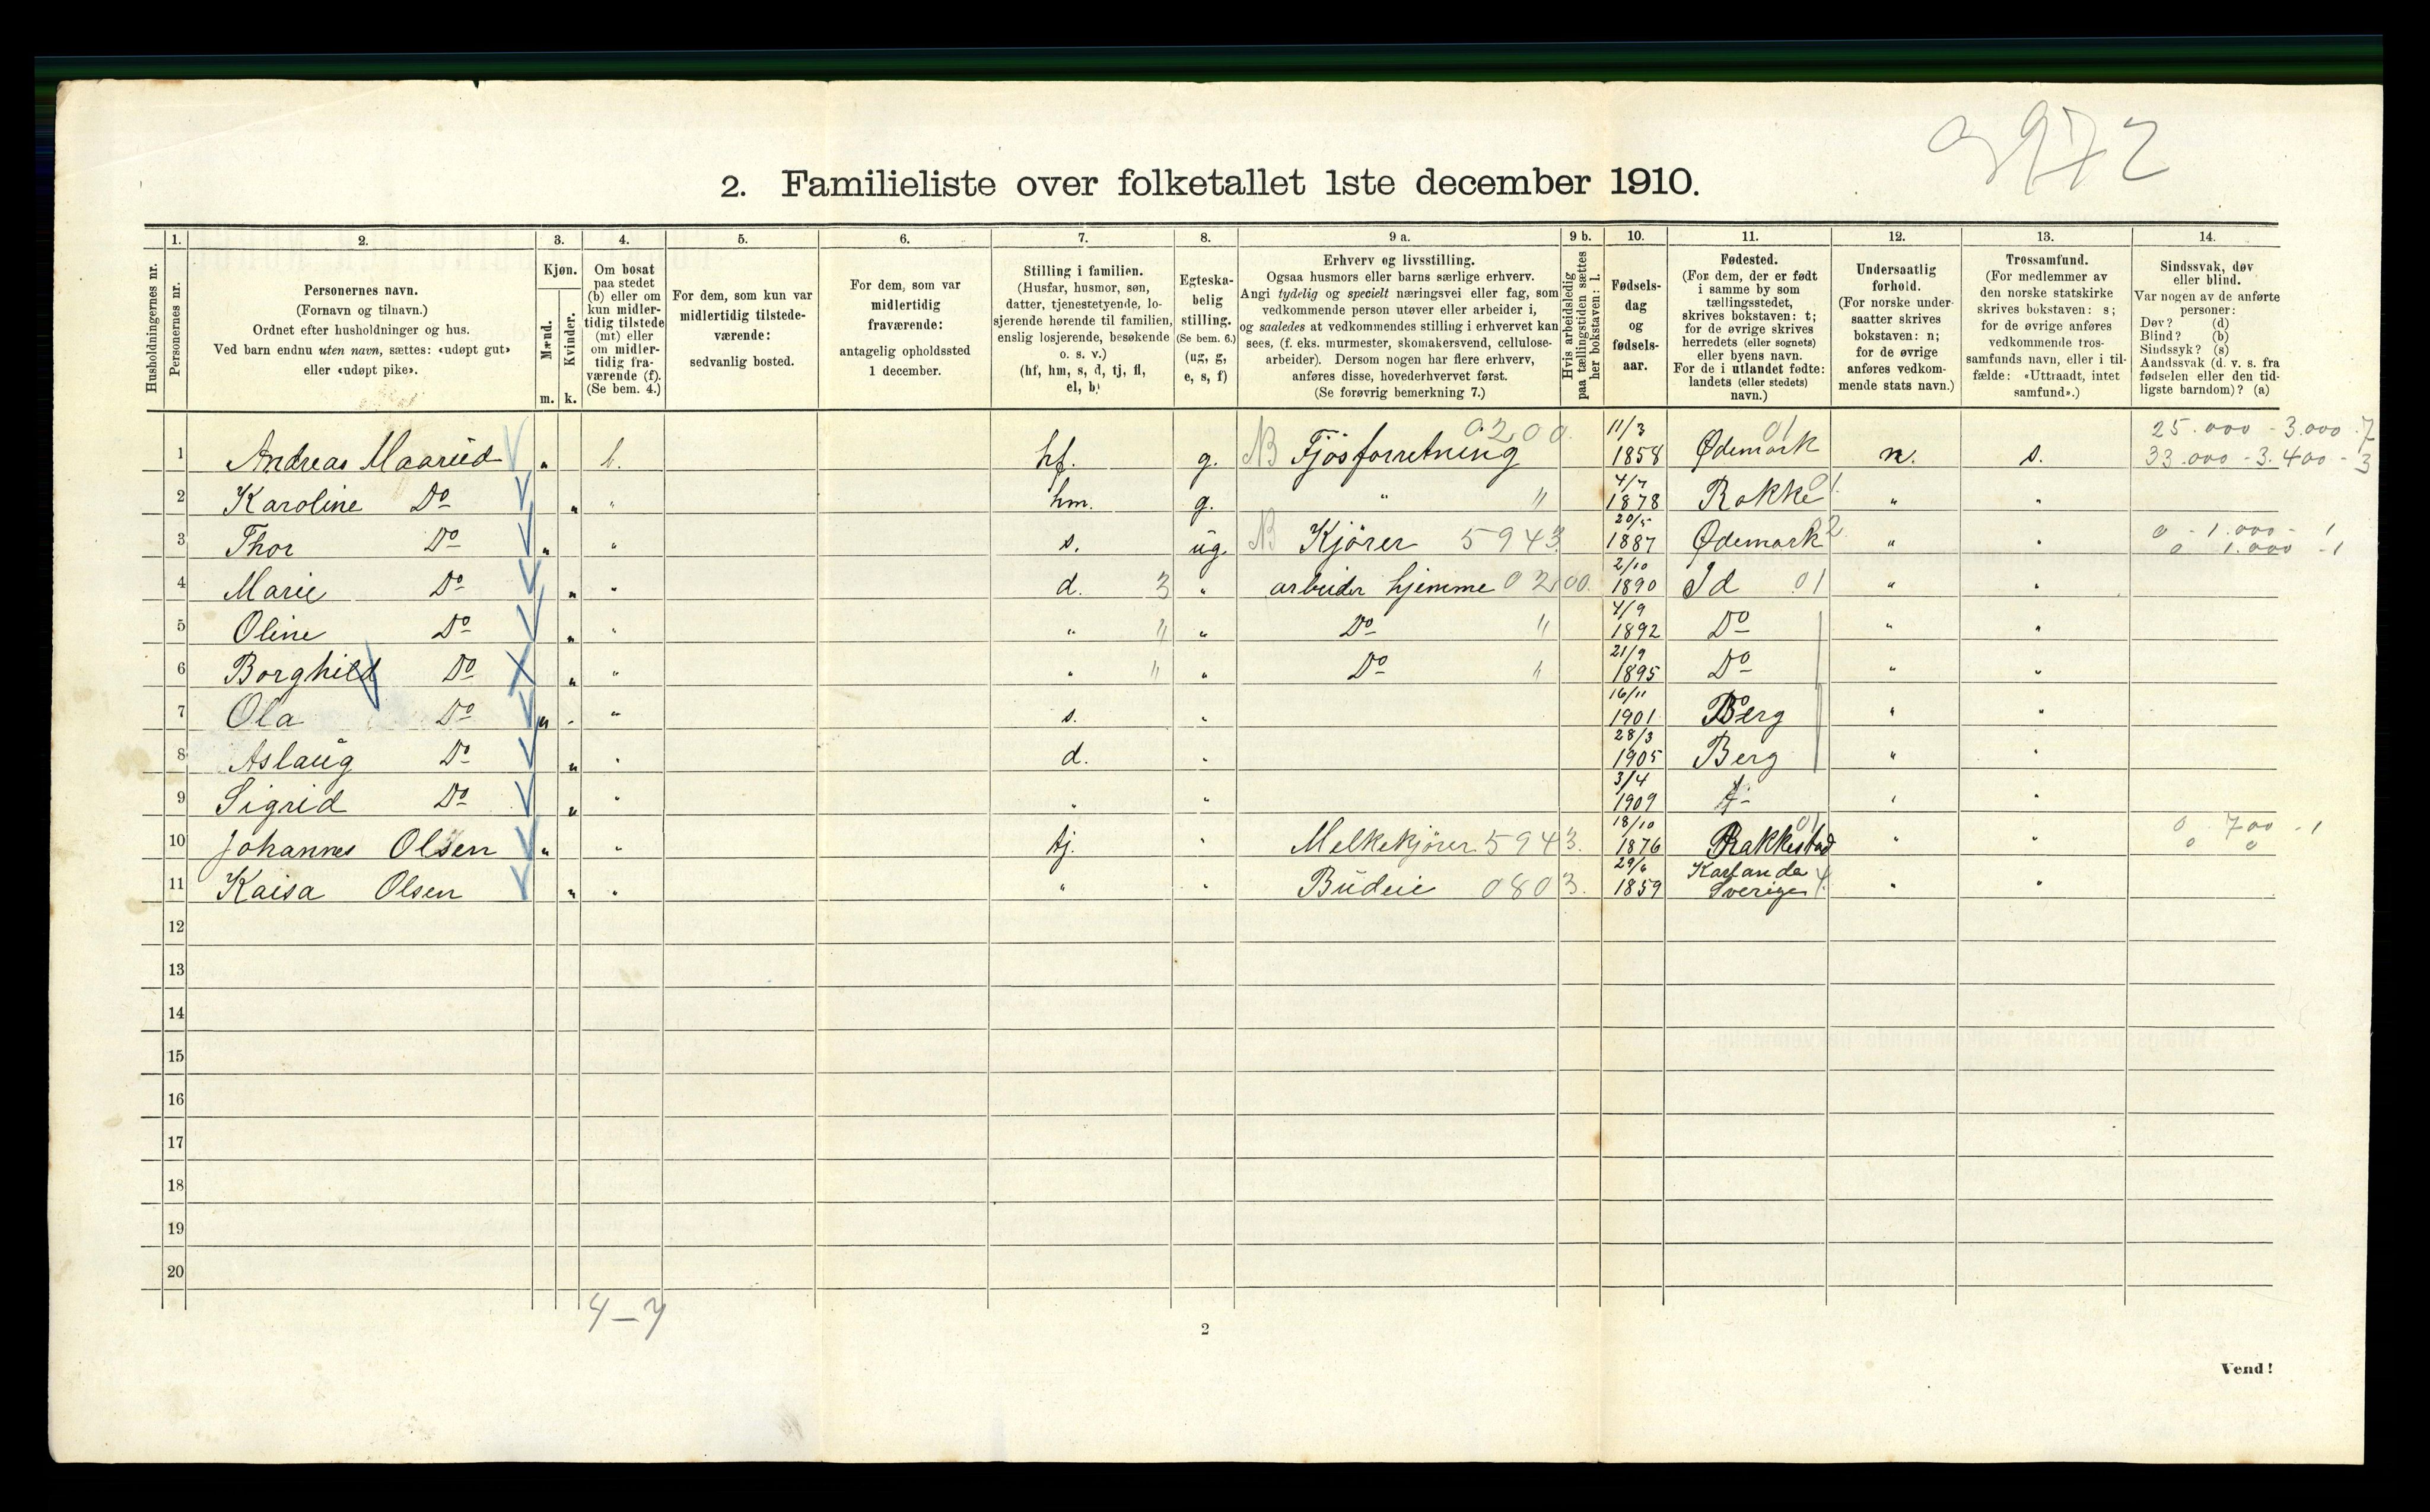 9972
2. Familieliste over folketallet 1ste december 1910.
Husholdningernes nr.
1.
Personernes nr.
2.
Personernes navn.
(Fornavn og tilnavn.)
Ordnet efter husholdninger og hus.
Ved barn endnu uten navn, sættes: «udøpt gut»
eller «udøpt pike».
3.
Kjøn.
Mænd.
Kvinder.
m.
k.
4.
Om bosat
paa stedet
(b) eller om
kun midler-
tidig tilstede
(mt) eller
om midler-
tidig fra-
værende (f).
(Se bem. 4.)
5.
For dem, som kun var
midlertidig tilstede-
værende:
sedvanlig bosted.
6.
For dem, som var
midlertidig
fraværende:
antagelig opholdssted
1 december.
7.
Stilling i familien.
(Husfar, husmor, søn,
datter, tjenestetyende, lo-
sjerende hørende til familien,
enslig losjerende, besøkende
o. s. v.)
(hf, hm, s, d, tj, fl,
el, b)
8.
Egteska-
belig
stilling.
(Se bem. 6.)
(ug, g,
e, s, f)
9 a.
Erhverv og livsstilling.
Ogsaa husmors eller barns særlige erhverv.
Angi tydelig og specielt næringsvei eller fag, som
vedkommende person utøver eller arbeider i,
og saaledes at vedkommendes stilling i erhvervet kan
sees, (f. eks. murmester, skomakersvend, cellulose-
arbeider). Dersom nogen har flere erhverv,
anføres disse, hovederhvervet først.
(Se forøvrig bemerkning 7.)
9 b.
Hvis arbeidsledig
paa tællingstiden sættes
her bokstaven: l.
10.
Fødsels-
dag
og
fødsels-
aar.
11.
Fødested.
(For dem, der er født
i samme by som
tællingsstedet,
skrives bokstaven: t;
for de øvrige skrives
herredets (eller sognets)
eller byens navn.
For de i utlandet fødte:
landets (eller stedets)
navn.)
12.
Undersaatlig
forhold.
(For norske under-
saatter skrives
bokstaven: n;
for de øvrige
anføres vedkom-
mende stats navn.)
13.
Trossamfund.
(For medlemmer av
den norske statskirke
skrives bokstaven: s;
for de øvrige anføres
vedkommende tros-
samfunds navn, eller i til-
fælde: «Uttraadt, intet
samfund».)
14.
Sindssvak, døv
eller blind.
Var nogen av de anførte
personer:
Døv? (d)
Blind? (b)
Sindssyk? (s)
Aandssvak (d. v. s. fra
fødselen eller den tid-
ligste barndom)? (a)
1 Andreas Maarud " b. hf. g. NB Fjøsforretning 0200. 11/3 1858 Ødemark 01 n. s. 25.000 - 3.000 . 7 33.000 - 3.400 - 3
2 Karoline Do " " hm. g. " " 1878 Rokke 01 " "
3 Thor Do " " s. ug. NB Kjører 5943 20/5 1887 Ødemark 22 " " 0 - 1.000 - 1 0 1.000 - 1
4 Marie Do " " d. 3 " arbeider hjemme 0200. 2/10 1890 Id 01 " "
5 Oline Do " " " " " Do " 4/9 1892 Do " "
6 Borghild Do " " " " " Do " 21/9 1895 Do " "
7 Ola Do " " s. " 16/11 1901 Berg " "
8 Aslaug Do " " d. " 28/3 1905 Berg " "
9 Sigrid Do " " " " 3/4 1909 " "
10 Johannes Olsen " " tj. " Melkekjører 5943. 18/10 1876 Rakkestad 01 " " 0 700 - 1 0 0
11 Kaisa Olsen " " " " Budeie 0803. 1859 Karlanda Sverige 4 " "
12
13
14
15
16
17
18
19
20
4 - 7
2
Vend!